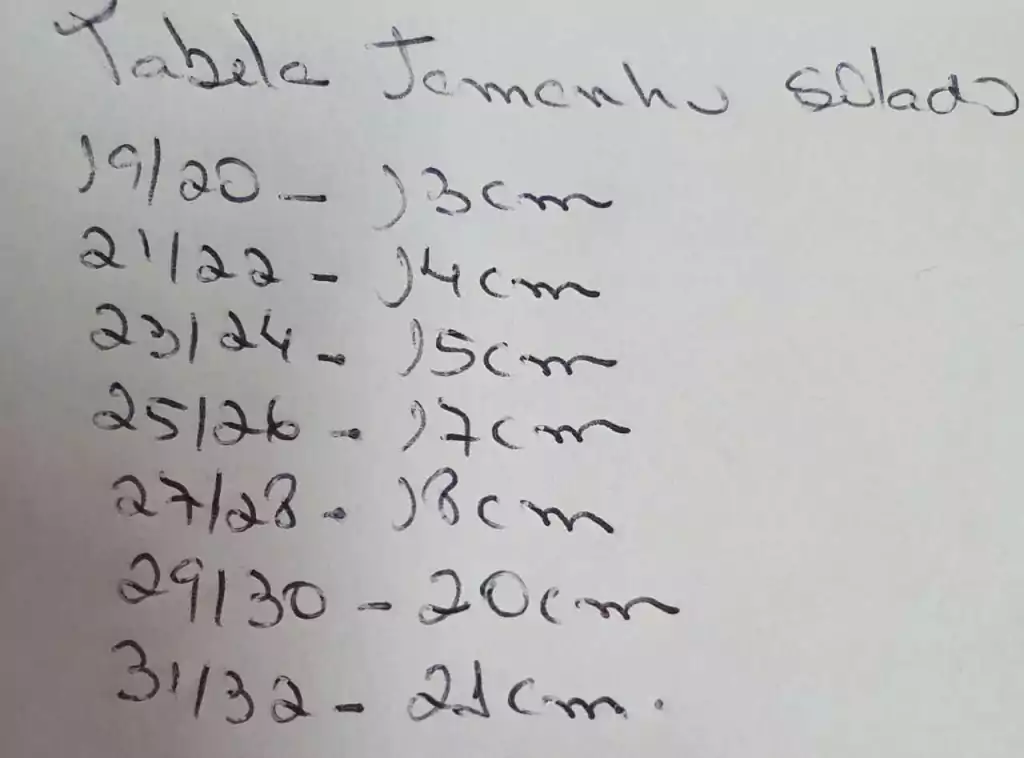 Tabela Tamanho solado
19/20 - 13cm
21/22 - 14cm
23/24 - 15cm
25/26 - 17cm
27/28 - 18cm
29/30 - 20cm
31/32 - 21cm.